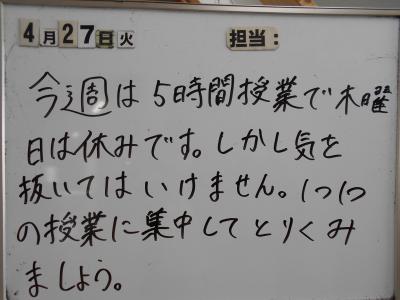 4月27日火 担当:
今週は5時間授業で木曜
日は休みです。しかし気を
抜いてはいけません。1つ1つ
の授業に集中してとりくみ
ましょう。